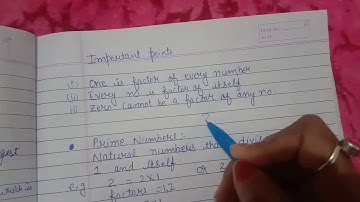 Important points
(i) One is factor of every number
(ii) Every no. a factor of itself.
iii) Zero cannot be a factor of any no.
• Prime Numbers:-
Natural numbers that
1 and itself
e.g 2 = 2x1 or 2
factors = 1,2